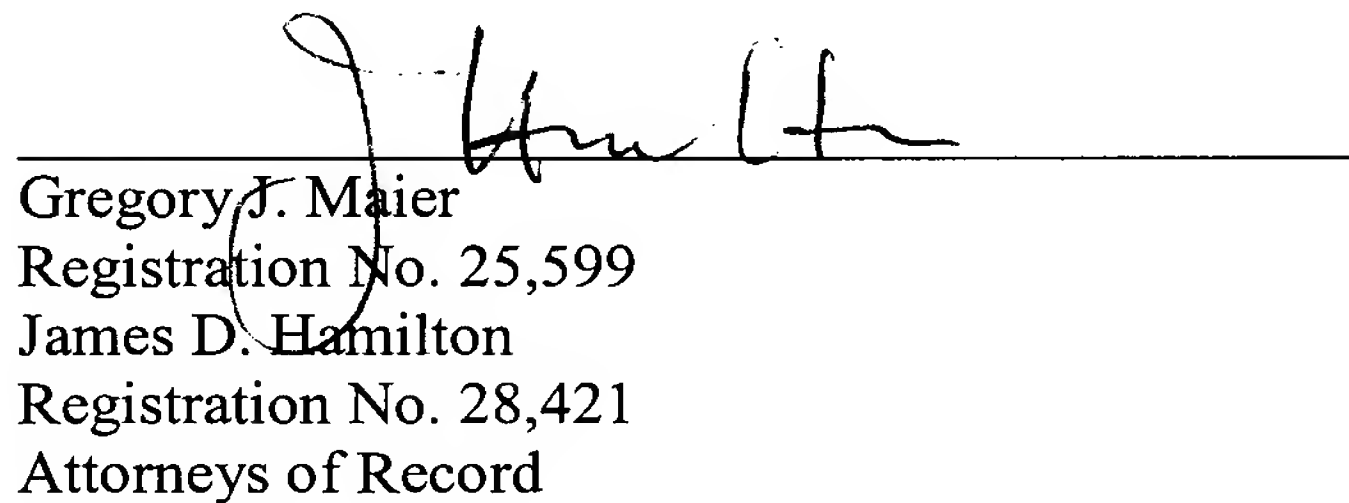 Gregory J. Maier
Registration No. 25,599
James D. Hamilton
Registration No. 28,421
Attorneys of Record